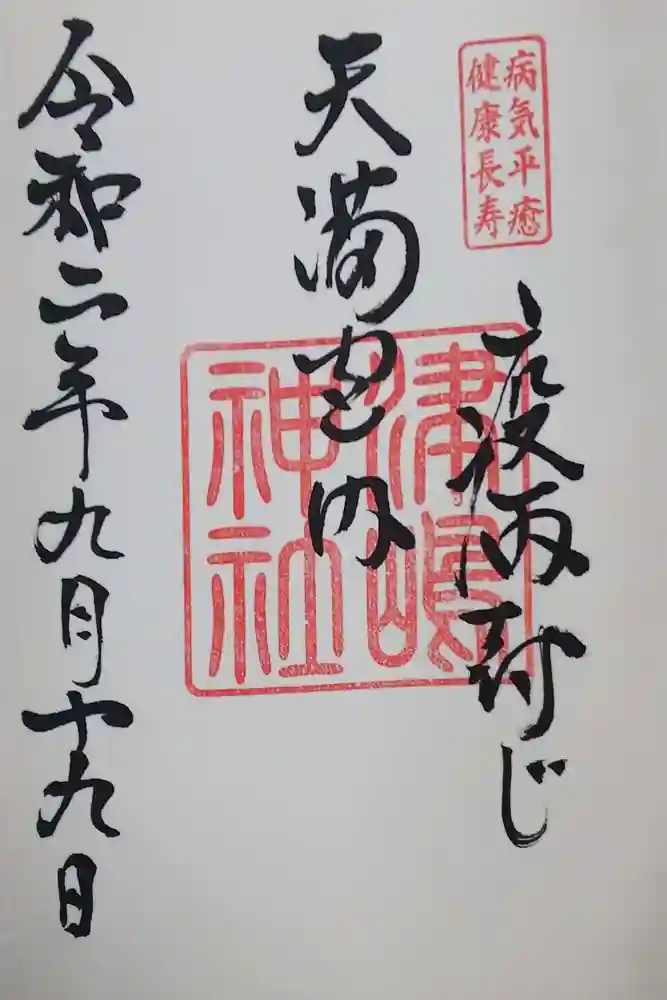 病気平癒
健康長寿
疫病封じ
津嶋神社
天満宮内
令和二年九月十九日